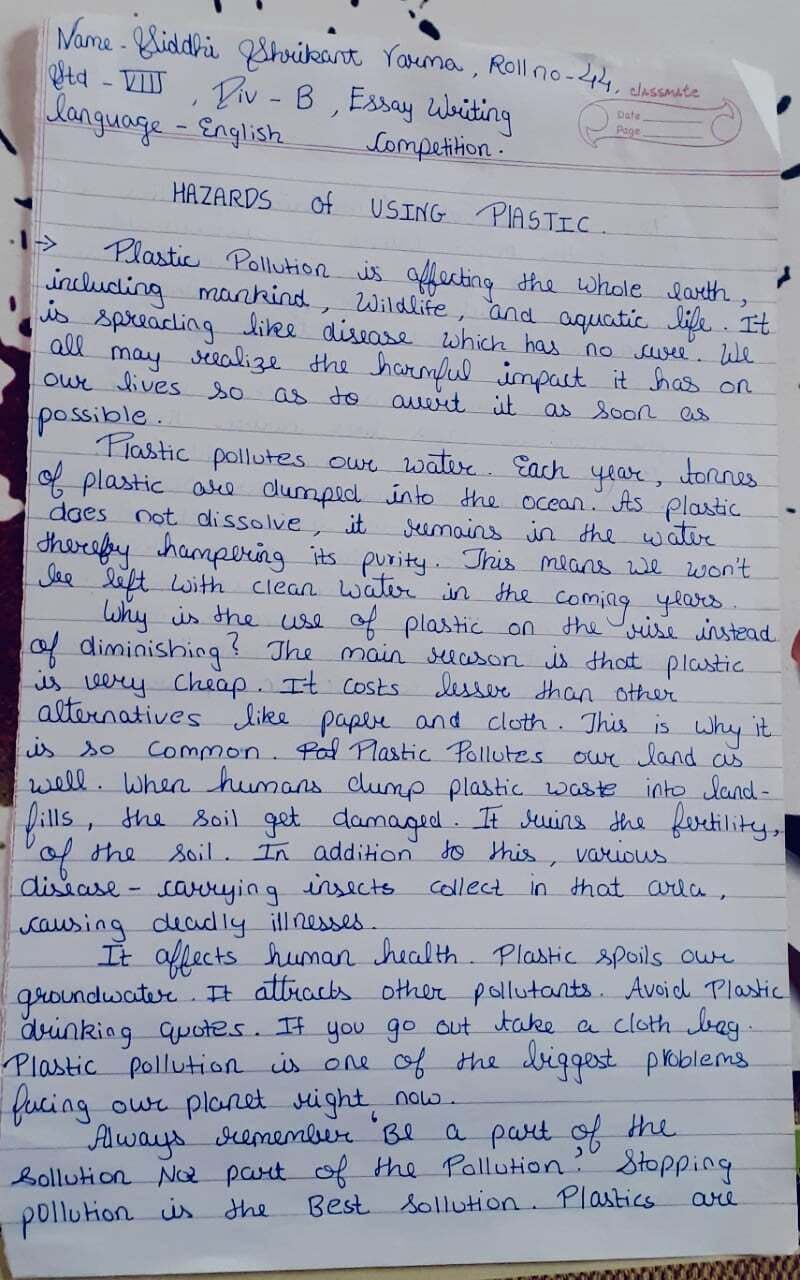 Name - Siddhi Shrikant Varma, Roll no - 44,
classmate
Std - VIII, Div - B, Essay Writing
Date
Page
language - English Competition.
HAZARDS of USING PlASTIC.
→ Plastic Pollution is affecting the whole earth,
including mankind, Wildlife, and aquatic life. It
is spreading like disease which has no cure. We
all may realize the harmful impact it has on
our lives so as to avert it as soon as
possible.
Plastic pollutes our water. Each year, tonnes
of plastic are dumped into the ocean. As plastic
does not dissolve, it remains in the water
thereby hampering its purity. This means we won't
be left with clean water in the coming years.
Why is the use of plastic on the rise instead
of diminishing? The main reason is that plastic
is very cheap. It costs lesser than other
alternatives like paper and cloth. This is why it
is so common. Pol Plastic Pollutes our land as
well. When humans dump plastic waste into land-
fills, the soil get damaged. It ruins the fertility,
of the soil. In addition to this, various
disease - carrying insects collect in that area,
causing deadly illnesses.
It affects human health. Plastic spoils our
groundwater. It attracts other pollutants. Avoid Plastic
drinking quotes. If you go out take a cloth bag.
Plastic pollution is one of the biggest problems
facing our planet right now.
Always remember 'Be a part of the
Sollution Not part of the Pollution.' Stopping
pollution is the Best Sollution. Plastics are